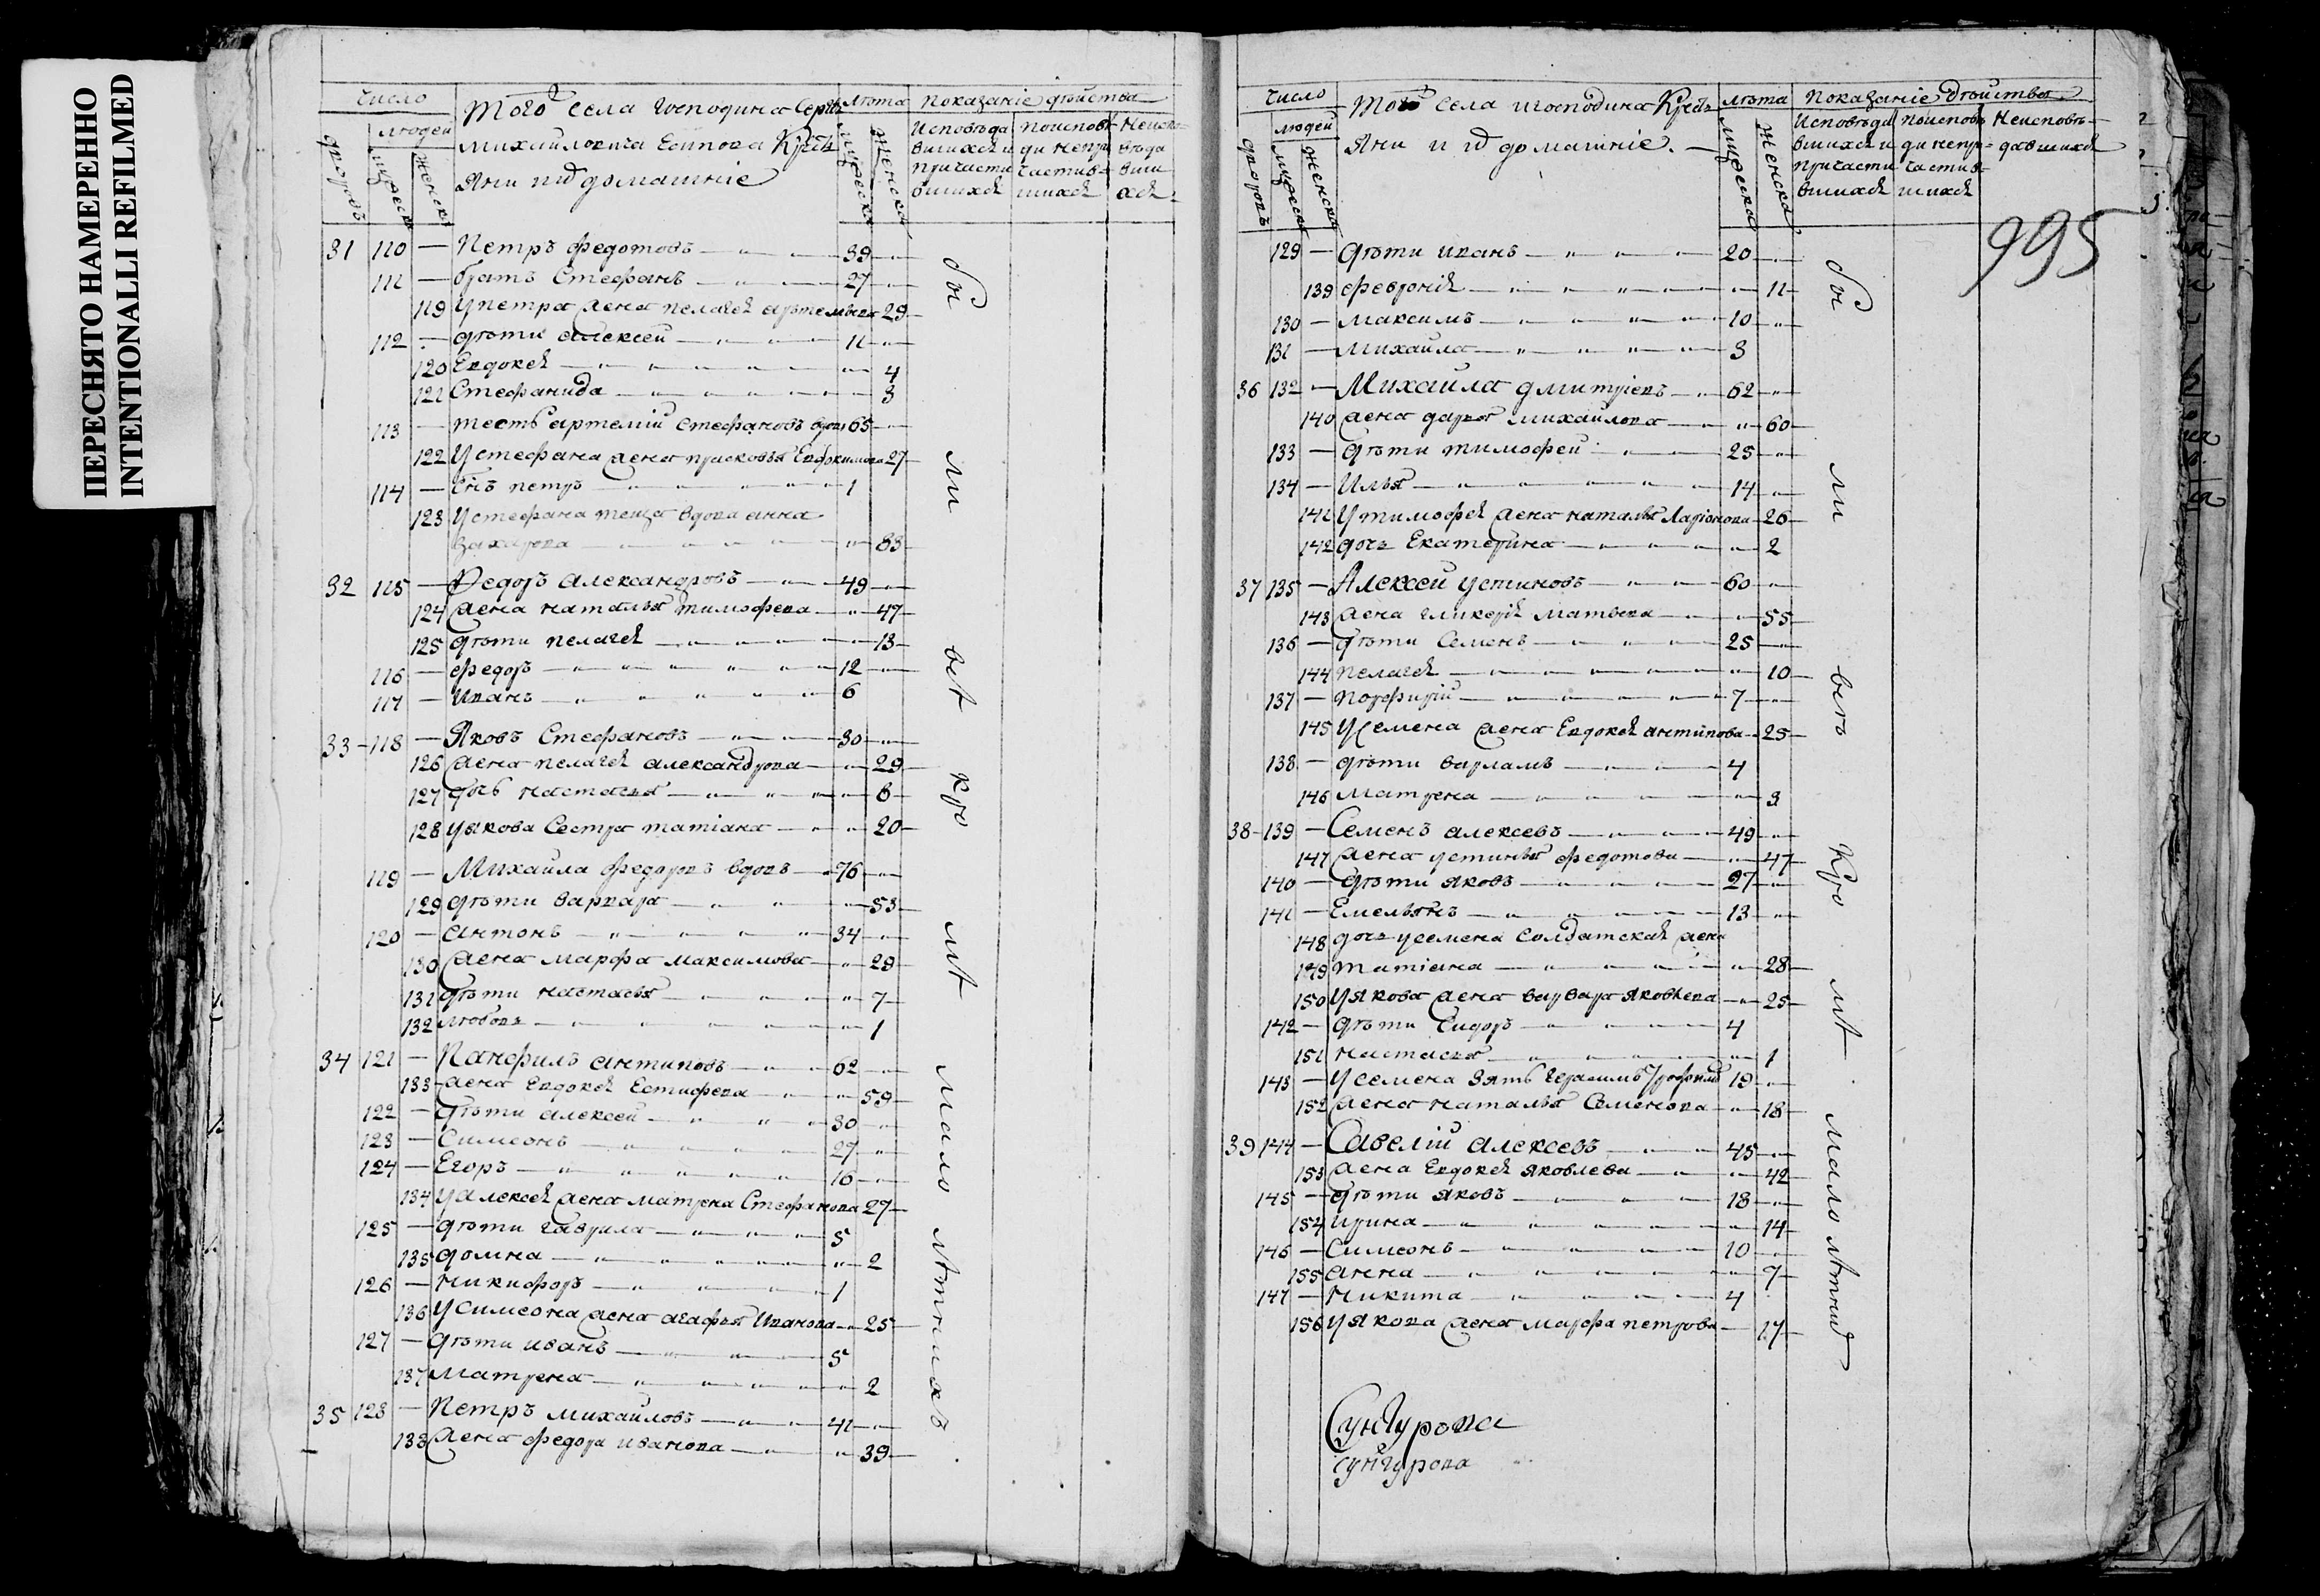 ПЕРЕСНЯТО НАМЕРЕННО
INTENTIONALLI REFILMED
число
людей
дворовъ
мужеска
женска
того села господина Сергѣя
михайловича Есипова Кресть
яни и их домашніе
лѣта
мужеска
женска
показаніе дѣйства
Исповѣда вшихся и причасти вшихся
поисповѣ ди непри частив шихся
Неиспо вѣда вши хся
31 110 — Петръ федотовъ 39
111 — братъ Стефанъ 27
119 У петра жена пелагея артемьева 29
112 — дѣти алексей 11
120 Евдокея 4
121 Стефанида 3
113 — тесть артемій стефановъ вдовъ 65
122 У стефана жена прасковья Евдокимова 27
114 — Снъ петръ 1
123 У стефана теща вдова анна
захарова 83
32 115 — Федоръ александровъ 49
124 жена наталья тимофеева 47
125 дѣти пелагея 13
116 — федоръ 12
117 — Иванъ 6
33 118 — Яковъ Стефановъ 30
126 жена пелагея александрова 29
127 дочь настасья 8
128 у якова Сестра татіана 20
119 — Михаила федоровъ вдовъ 76
129 дѣти варвара 53
120 — антонъ 34
130 жена марфа максимова 29
131 дѣти настасья 7
132 любовь 1
34 121 — Панфилъ антиповъ 62
133 жена Евдокея Естифева 59
122 — дѣти алексей 30
123 — Симеонъ 27
124 — Егоръ 16
134 у алексея жена матрена Стефанова 27
125 — дѣти гаврила 5
135 домна 2
126 — никифоръ 1
136 у симеона жена агафья Иванова 25
127 — дѣти иванъ 5
137 матрена 2
35 128 — Петръ михайловъ 41
138 жена федора иванова 39
бы ли всѣ кро мѣ мало лѣтнихъ
число
людей
дворовъ
мужеска
женска
того села господина Кресть
яни и их домашніе.
лѣта
мужеска
женска
показаніе дѣйства
Исповѣда вшихся и причасти вшихся
поисповѣ ди непри частив шихся
Неисповѣ давшихся
995
129 — дѣти иванъ 20
139 феврония 11
130 — максимъ 10
131 — михаила 3
36 132 — Михаила дмитріевъ 62
140 жена дарья михайлова 60
133 — дѣти тимофей 25
134 — Илья 14
141 У тимофея жена наталья Ларіонова 26
142 дочь Екатерина 2
37 135 — Алексей устиновъ 60
143 жена гликерія матвеева 55
136 — дѣти Семенъ 25
144 пелагея 10
137 — порфирій 7
145 У Семена жена Евдокея антипова 25
138 — дѣти варламъ 4
146 матрена 3
38 139 — Семенъ алексевъ 49
147 жена устинья федотова 47
140 — дѣти яковъ 27
141 — Емельянъ 13
148 дочь у семена солдатская жена
149 татіана 28
150 У якова жена варвара яковлева 25
142 — дѣти Сидоръ 4
151 настасья 1
143 — У семена зять герасимъ 19
152 жена наталья Семенова 18
39 144 — Савелій алексевъ 45
153 жена Евдокея яковлева 42
145 — дѣти яковъ 18
154 ирина 14
146 — Симеонъ 10
155 анна 7
147 — никита 4
156 у якова жена марфа петрова 17
бы ли всѣ кро мѣ мало лѣтних
Сунгурова
Сунгурова